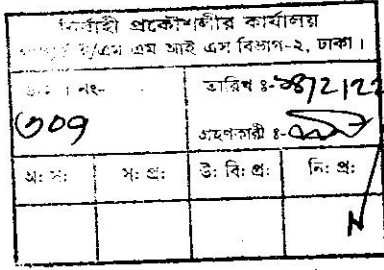 নির্বাহী প্রকৌশলীর কার্যালয়
ই/এম এম আই এস বিভাগ-২, ঢাকা।
নং- তারিখ ঃ-
৩০৭ গ্রহণকারী ঃ-
অঃ সঃ সঃ প্রঃ উঃ বিঃ প্রঃ নিঃ প্রঃ